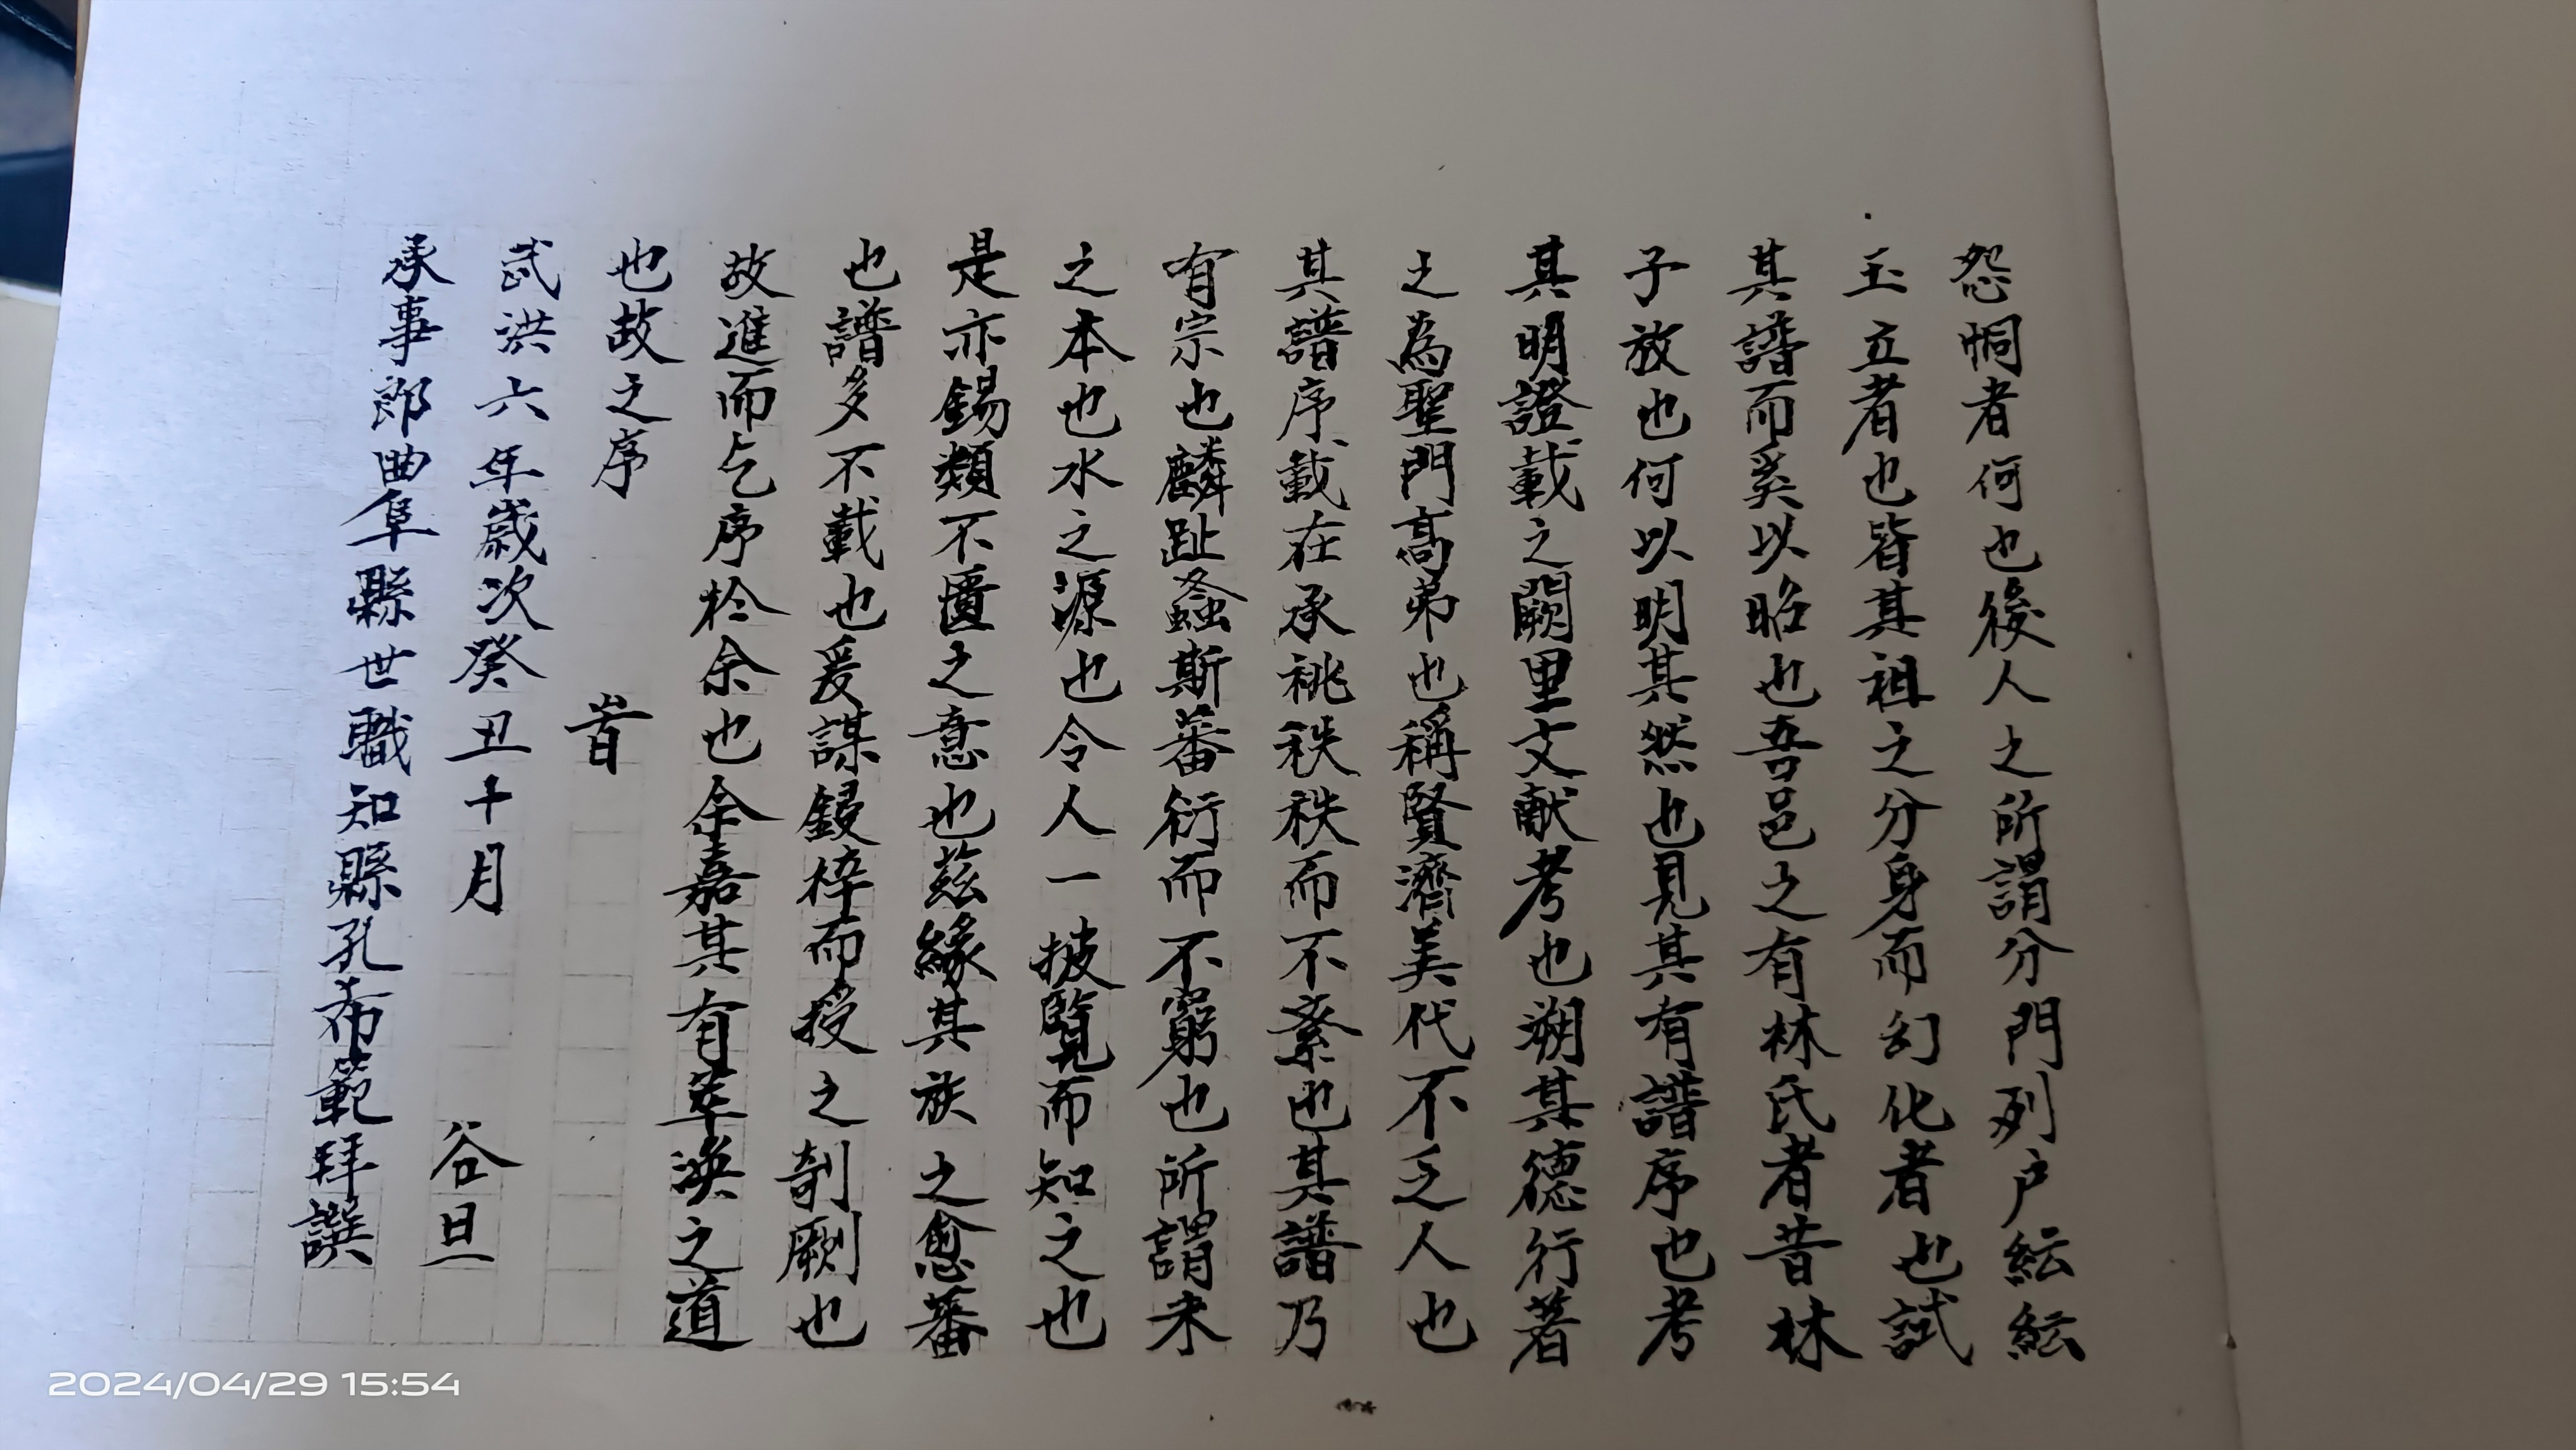 怨恫者何也後人之所謂分門列户紜紜
玉立者也皆其祖之分身而幻化者也試
其譜而奚以昭也吾邑之有林氏者昔林
子放也何以明其然也見其有譜序也考
其明證載之闕里文献考也溯其德行著
之為聖門高弟也稱賢濟美代不乏人也
其譜序載在承祧秩秩而不紊也其譜乃
有宗也麟趾螽斯蕃衍而不窮也所謂木
之本也水之源也令人一披覽而知之也
是亦錫類不匱之意也茲緣其族之愈蕃
也譜多不載也爰謀鋟梓而授之剞劂也
故進而乞序於余也余嘉其有萃渙之道
也故之序
旹
武洪六年歲次癸丑十月 谷旦
承事郎曲阜縣世職知縣孔希範拜譔
2024/04/29 15:54